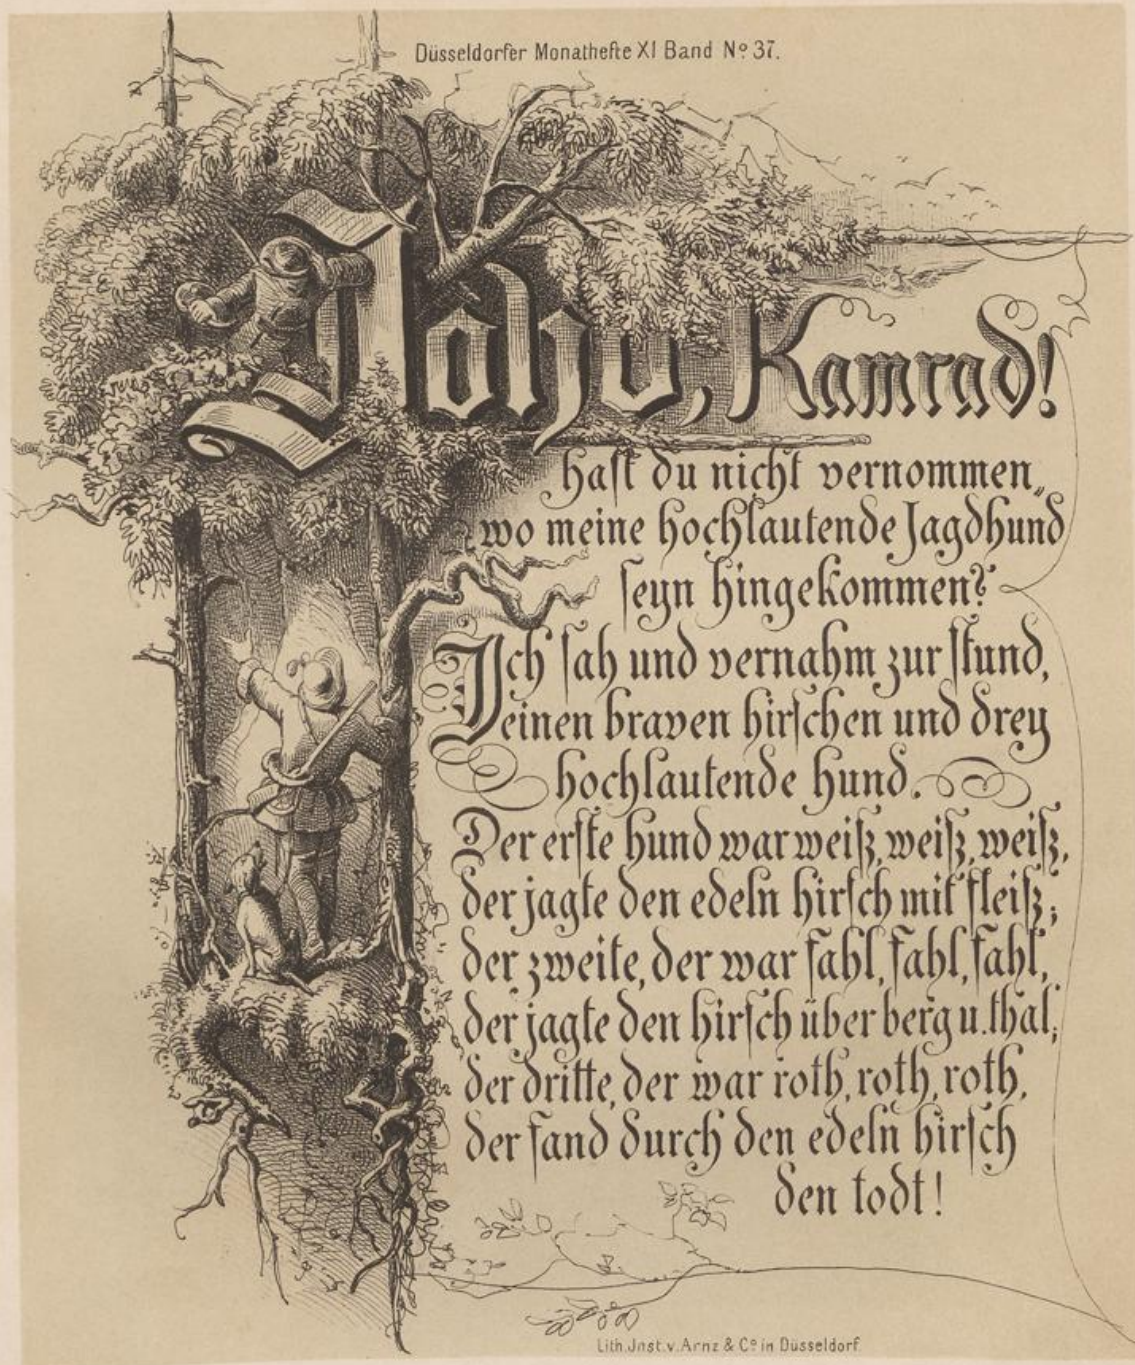 Düsseldorfer Monathefte XI Band No 37.
Johο, Kamrad!
hast du nicht vernommen,
wo meine hochlautende Jagdhund
seyn hingekommen?
Ich sah und vernahm zur stund,
Deinen braven hirschen und drey
hochlautende hund.
Der erste hund war weiß, weiß, weiß,
der jagte den edeln hirsch mit fleiß;
der zweite, der war fahl, fahl, fahl,
der jagte den hirsch über berg u. thal;
der dritte, der war roth, roth, roth,
der fand durch den edeln hirsch
den todt!
Lith. Inst. v. Arnz & Co in Düsseldorf